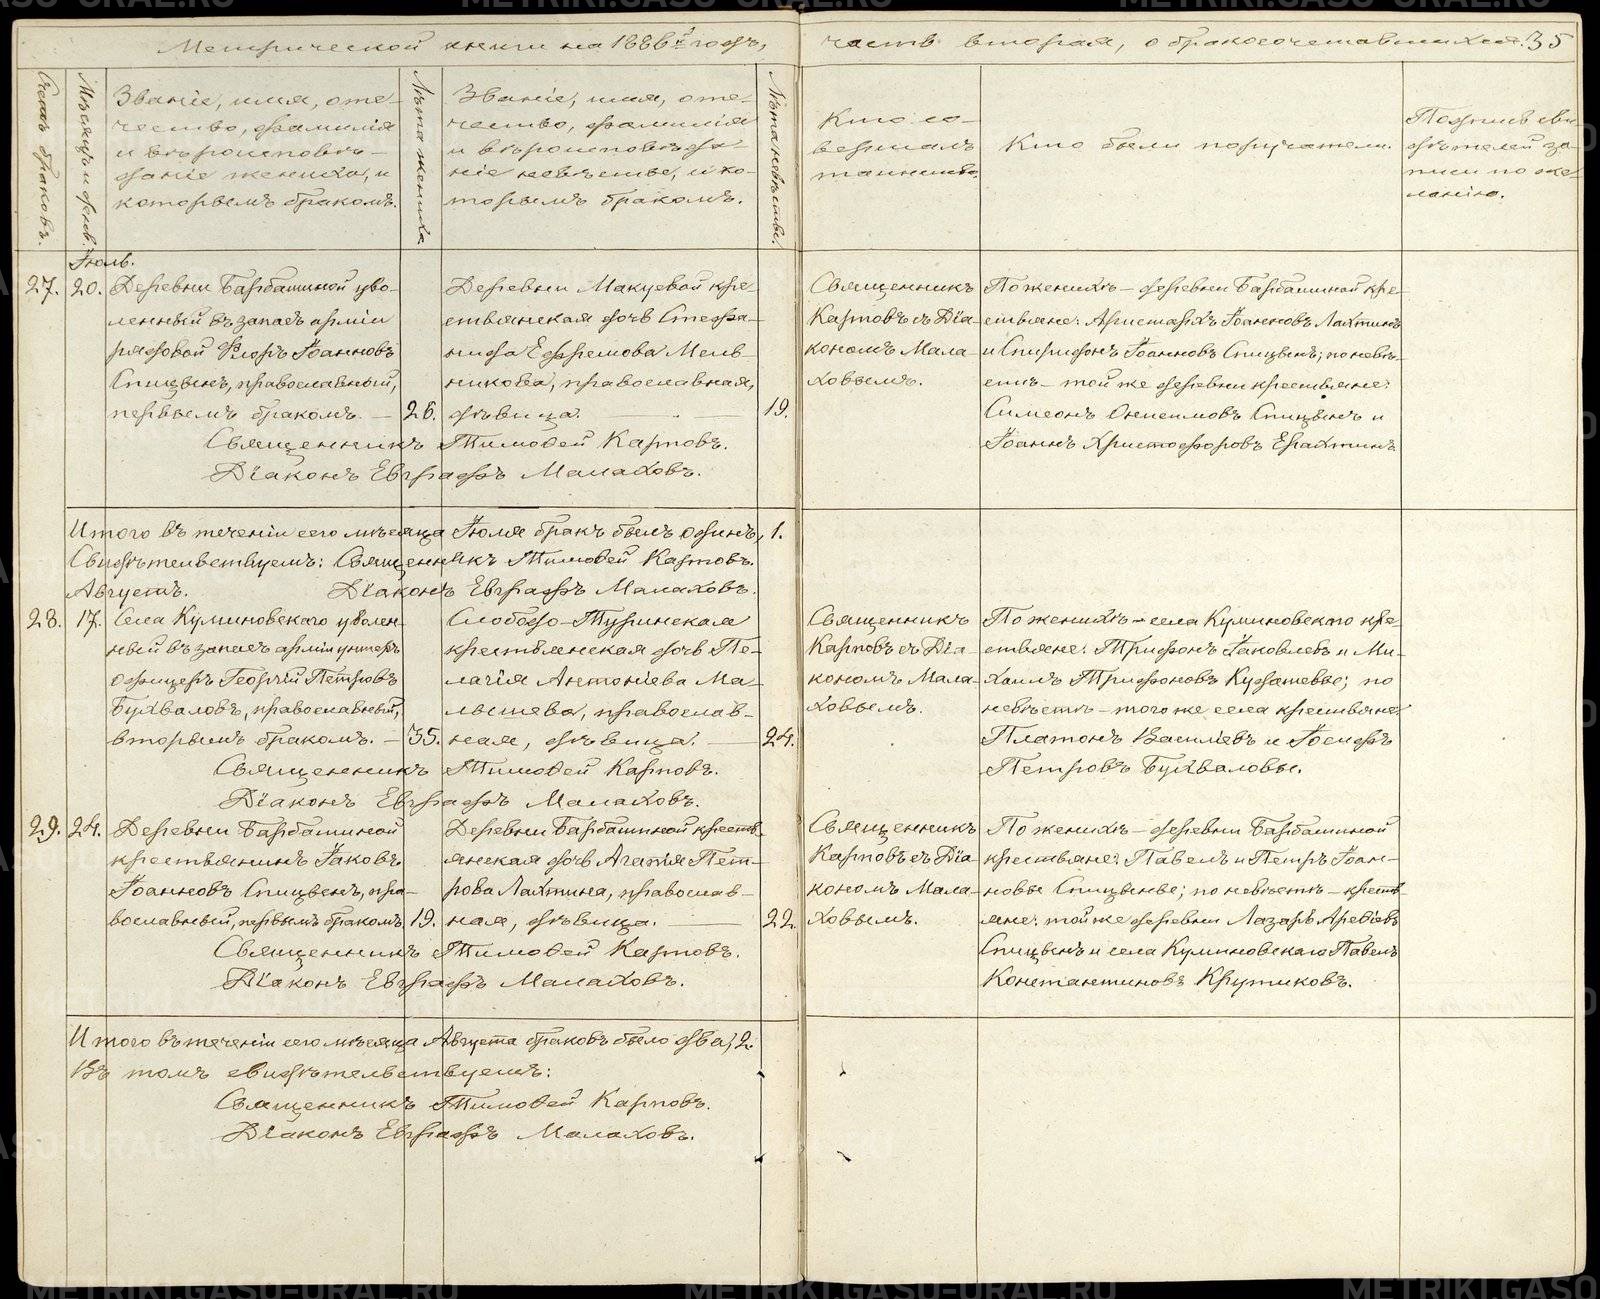 Метрической книги на 1886й годъ,
часть вторая, о бракосочетавшихся. 35
Счетъ браковъ.
Мѣсяцъ и день.
Званіе, имя, оте-
чество, фамилія
и вѣроисповѣ-
даніе жениха, и
которымъ бракомъ.
Лѣта жениха.
Званіе, имя, оте-
чество, фамилія
и вѣроисповѣда-
ніе невѣсты, и ко-
торымъ бракомъ.
Лѣта невѣсты.
Кто со-
вершалъ
таинство.
Кто были поручатели.
Подпись сви-
дѣтелей за-
писи по же-
ланію.
Іюль.
27. 20.
Деревни Барбашиной уво-
ленный въ запасъ арміи
рядовой Ѳедоръ Іоанновъ
Спицынъ, православный,
первымъ бракомъ. — 26.
Деревни Макуевой кре-
стьянская дочь Стефа-
нида Ефремова Мель-
никова, православная,
дѣвица. — 19.
Священникъ
Карповъ съ Діа-
кономъ Мала-
ховымъ.
По женихѣ — деревни Барбашиной кре-
стьяне: Аристархъ Іоанновъ Лахтинъ
и Спиридонъ Іоанновъ Спицынъ; по невѣ-
стѣ — той же деревни крестьяне:
Симеонъ Онисимовъ Спицынъ и
Іоаннъ Христофоровъ Ерахтинъ
Священникъ Тимоѳей Карповъ.
Діаконъ Евграфъ Малаховъ.
Итого въ теченіи сего мѣсяца Іюля бракъ былъ одинъ, 1.
Свидѣтельствуемъ: Священникъ Тимоѳей Карповъ.
Августъ. Діаконъ Евграфъ Малаховъ.
28. 17.
Села Куминовскаго уволен-
ный въ запасъ арміи унтеръ
офицеръ Георгій Петровъ
Бухваловъ, православный,
вторымъ бракомъ. — 35.
Слободо-Туринская
крестьянская дочь Пе-
лагія Антоніева Ма-
лышева, православ-
ная, дѣвица. — 24.
Священникъ
Карповъ съ Діа-
кономъ Мала-
ховымъ.
По женихѣ — села Куминовскаго кре-
стьяне: Трифонъ Іаковлевъ и Ми-
хаилъ Трифоновъ Кудашевы; по
невѣстѣ — того же села крестьяне:
Платонъ Василіевъ и Іосифъ
Петровъ Бухваловы.
Священникъ Тимоѳей Карповъ.
Діаконъ Евграфъ Малаховъ.
29. 24.
Деревни Барбашиной
крестьянинъ Іаковъ
Іоанновъ Спицынъ, пра-
вославный, первымъ бракомъ 19.
Деревни Барбашиной кресть-
янская дочь Агапія Пет-
рова Лахтина, православ-
ная, дѣвица. — 22.
Священникъ
Карповъ съ Діа-
кономъ Мала-
ховымъ.
По женихѣ — деревни Барбашиной
крестьяне: Павелъ и Петръ Іоан-
новы Спицыны; по невѣстѣ — кресть-
яне: той же деревни Лазарь Арефіевъ
Спицынъ и села Куминовскаго Павелъ
Константиновъ Крутиковъ.
Священникъ Тимоѳей Карповъ.
Діаконъ Евграфъ Малаховъ.
Итого въ теченіи сего мѣсяца Августа браковъ было два, 2.
Въ томъ свидѣтельствуемъ:
Священникъ Тимоѳей Карповъ.
Діаконъ Евграфъ Малаховъ.
METRIKI.GASU-URAL.RU